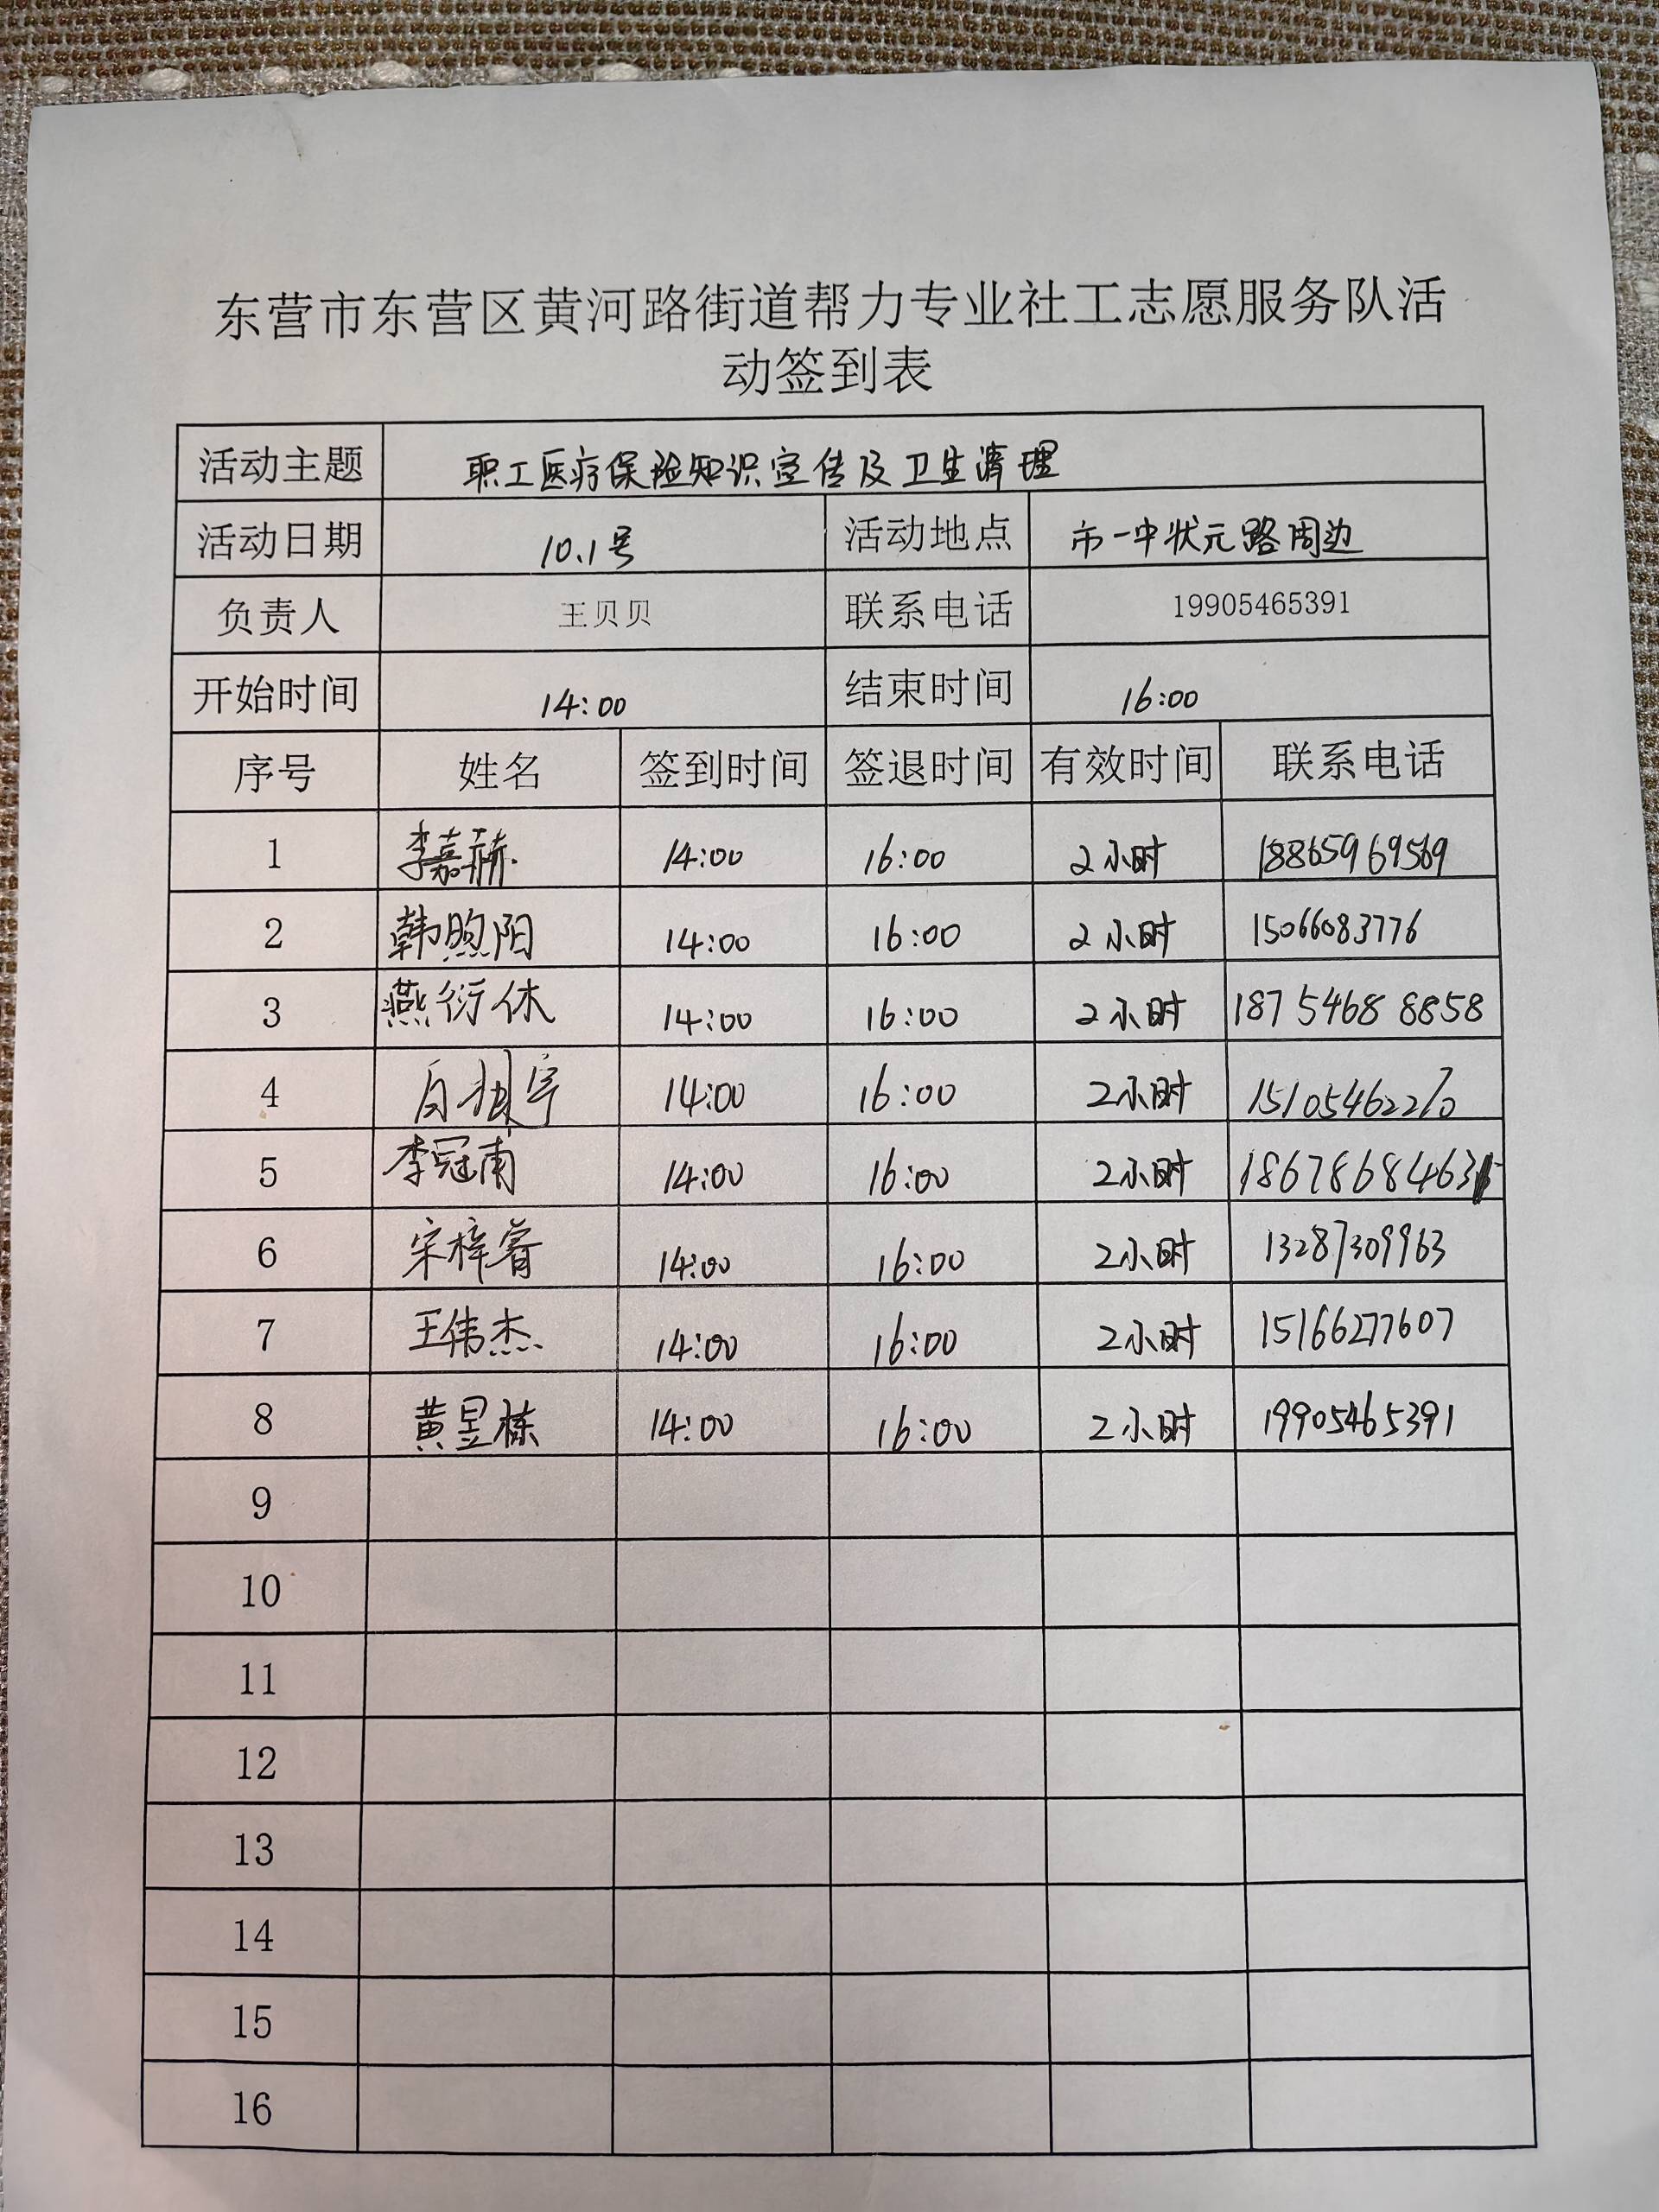 东营市东营区黄河路街道帮力专业社工志愿服务队活
动签到表
活动主题 职工医疗保险知识宣传及卫生清理
活动日期 10.1号 活动地点 市一中状元路周边
负责人 王贝贝 联系电话 19905465391
开始时间 14:00 结束时间 16:00
序号 姓名 签到时间 签退时间 有效时间 联系电话
1 李嘉赫 14:00 16:00 2小时 18865969569
2 韩煦阳 14:00 16:00 2小时 15066083776
3 燕衍休 14:00 16:00 2小时 18754688858
4 14:00 16:00 2小时 15105462270
5 李冠甫 14:00 16:00 2小时 18678684631
6 宋梓睿 14:00 16:00 2小时 13287309963
7 王伟杰 14:00 16:00 2小时 15166277607
8 黄昱栋 14:00 16:00 2小时 19905465391
9
10
11
12
13
14
15
16